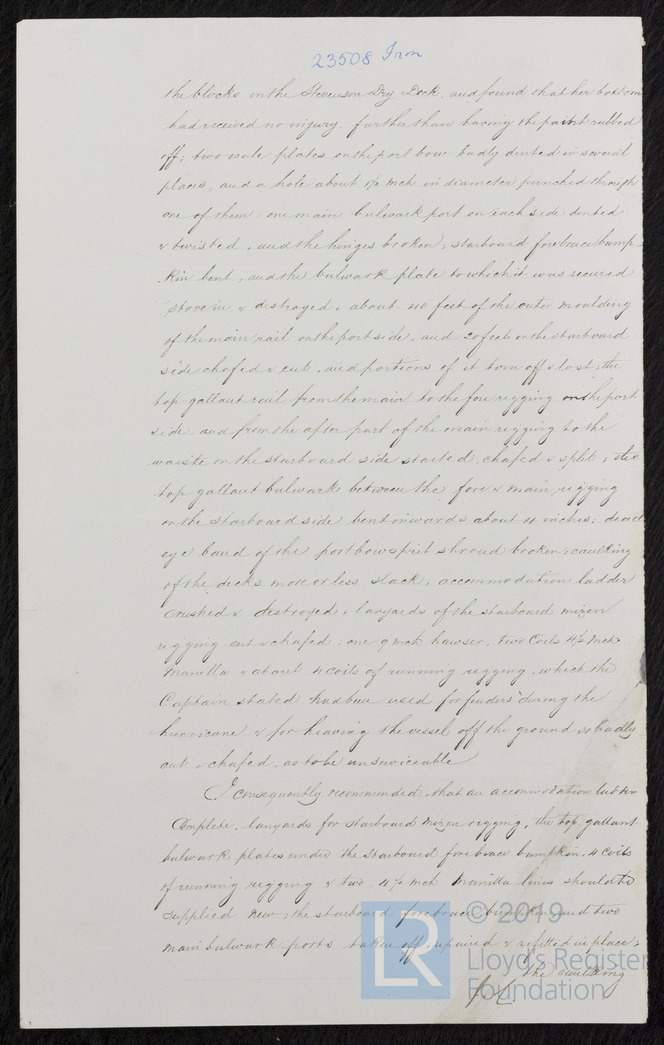 23508 Iron
the blocks in the Stevenson Dry Dock, and found that her bottom
had received no injury further than having the paint rubbed
off; two wale plates on the port bow badly dented in several
places, and a hole about 1½ inch in diameter punched through
one of them; one main bulwark port on each side dented
& twisted, and the hinges broken; starboard forebrace bump-
kin bent, and the bulwark plate to which it was secured
stove in & destroyed, about 40 feet of the outer moulding
of the main rail on the port side, and 20 feet on the starboard
side chafed & cut, and portions of it torn off & lost; the
top gallant rail from the main to the fore rigging on the port
side and from the after part of the main rigging to the
waiste on the starboard side started, chafed & split; the
top gallant bulwark between the fore & main rigging
on the starboard side bent inwards about 4 inches; dead
eye band of the port bowsprit shroud broken; caulking
of the decks more or less slack; accommodation ladder
crushed & destroyed, lanyards of the starboard mizen
rigging cut & chafed, one 9 inch hawser, two Coils 4½ inch
Manilla & about 4 coils of running rigging, which the
Captain stated had been used for fenders during the
hurricane & for heaving the vessel off the ground so badly
cut & chafed, as to be unserviceable
I consequently recommended, that an accommodation ladder
Complete, lanyards for starboard mizen rigging, the top gallant
bulwark plates under the starboard forebrace bumpkin, 4 coils
of running rigging & two 4½ inch Manilla lines should be
supplied new; the starboard forebrace bumpkin and two
main bulwark ports taken off, repaired & refitted in place;
the caulking
LR
© 2019
Lloyd's Register
Foundation